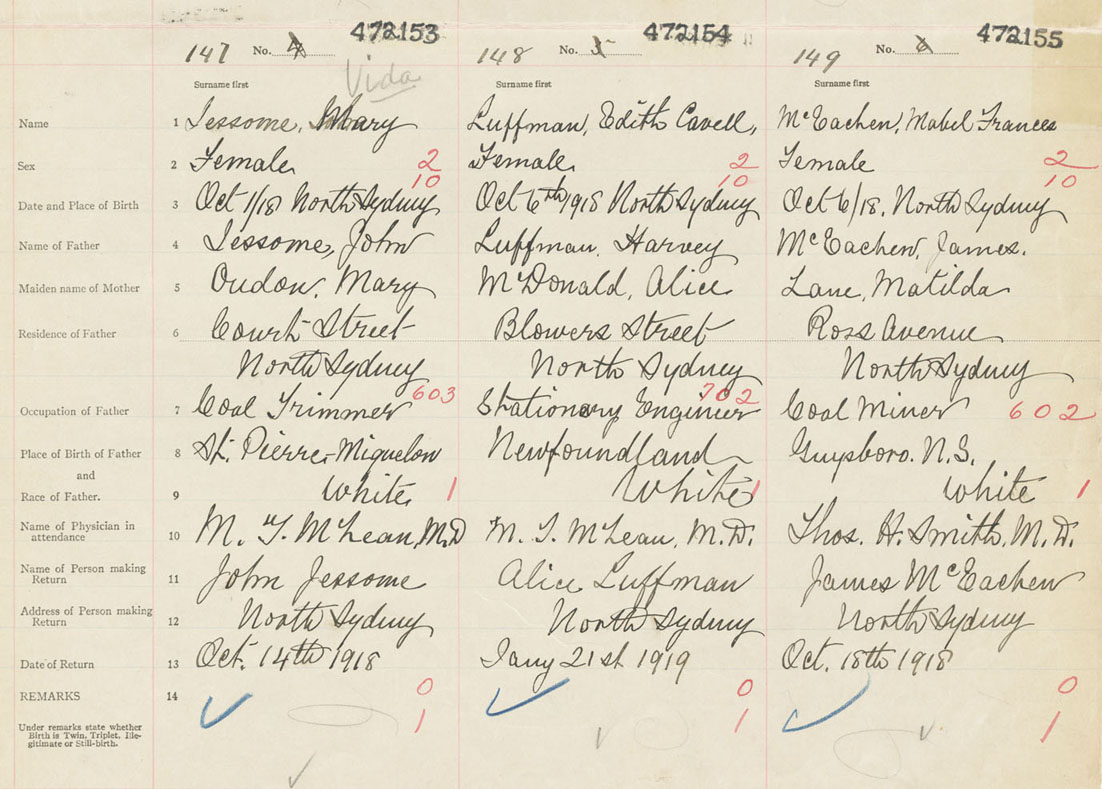 472153 472154 472155
147 No. 4 148 No. 5 149 No. 6
Vida
Surname first Surname first Surname first
Name 1 Jessome, Mary Luffman, Edith Cavell, McEachen, Mabel Frances
Sex 2 Female 2 Female 2 Female 2
10 10 10
Date and Place of Birth 3 Oct 1/18 North Sydney Oct 6th 1918 North Sydney Oct 6/18. North Sydney
Name of Father 4 Jessome, John Luffman, Harvey McEachen, James.
Maiden name of Mother 5 Oudon, Mary McDonald, Alice Lane, Matilda
Residence of Father 6 Court Street Blowers Street Ross Avenue
North Sydney North Sydney North Sydney
Occupation of Father 7 Coal Trimmer 603 Stationary Engineer 702 Coal Miner 602
Place of Birth of Father 8 St. Pierre-Miquelon Newfoundland Guysboro. N.S.
and
Race of Father. 9 White 1 White 1 White 1
Name of Physician in
attendance 10 M. T. McLean, M.D M. T. McLean, M.D. Thos. H. Smith, M.D.
Name of Person making
Return 11 John Jessome Alice Luffman James McEachen
Address of Person making
Return 12 North Sydney North Sydney North Sydney
Date of Return 13 Oct. 14th 1918 Jany 21st 1919 Oct. 18th 1918
REMARKS 14 0 0 0
Under remarks state whether
Birth is Twin, Triplet, Ille-
gitimate or Still-birth.
1 1 1